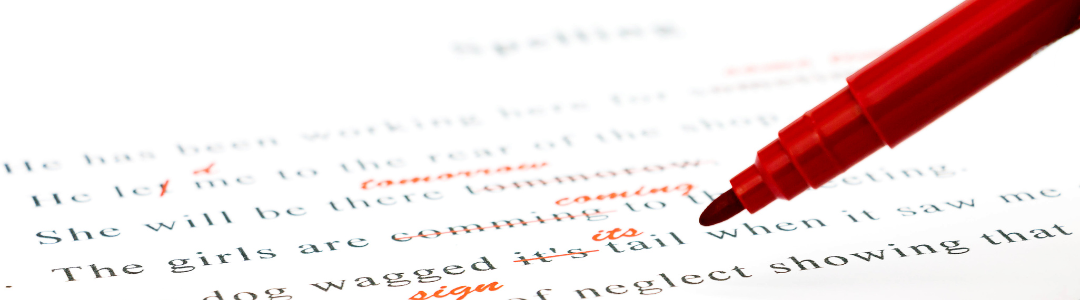 Spelling
He has been working here for
He let me to the rear of the shop
d
tomorrow
She will be there tommorow.
coming
The girls are comming to the meeting.
its
dog wagged it's tail when it saw me
sign
of neglect showing that